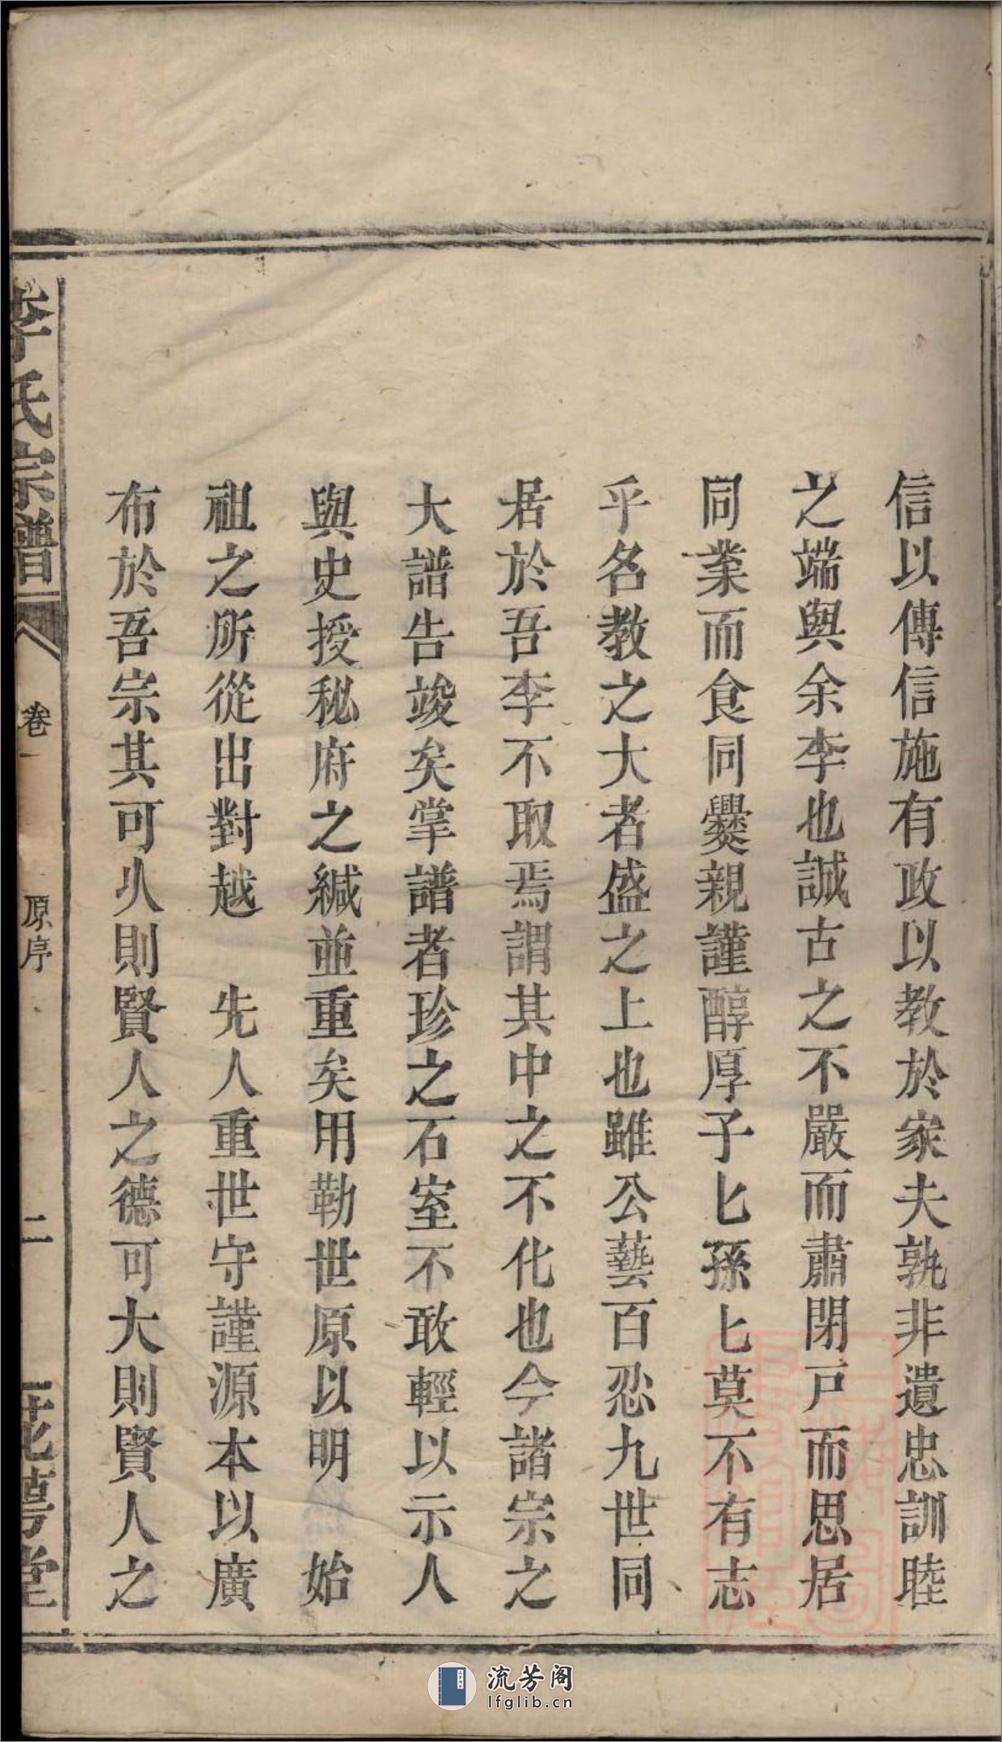 信以傳信施有政以教於家夫孰非遺忠訓睦
之端與余李也誠古之不嚴而肅閉戸而思居
同業而食同爨親謹醇厚子匕孫匕莫不有志
乎名教之大者盛之上也雖公藝百忍九世同
居於吾李不取焉謂其中之不化也今諸宗之
大譜告竣矣掌譜者珍之石室不敢輕以示人
與史授秘府之緘並重矣用勒世原以明　始
祖之所從出對越　先人重世守謹源本以廣
布於吾宗其可乆則賢人之德可大則賢人之
李氏宗譜
卷一
原序
二
花萼堂
流芳阁
lfglib.cn